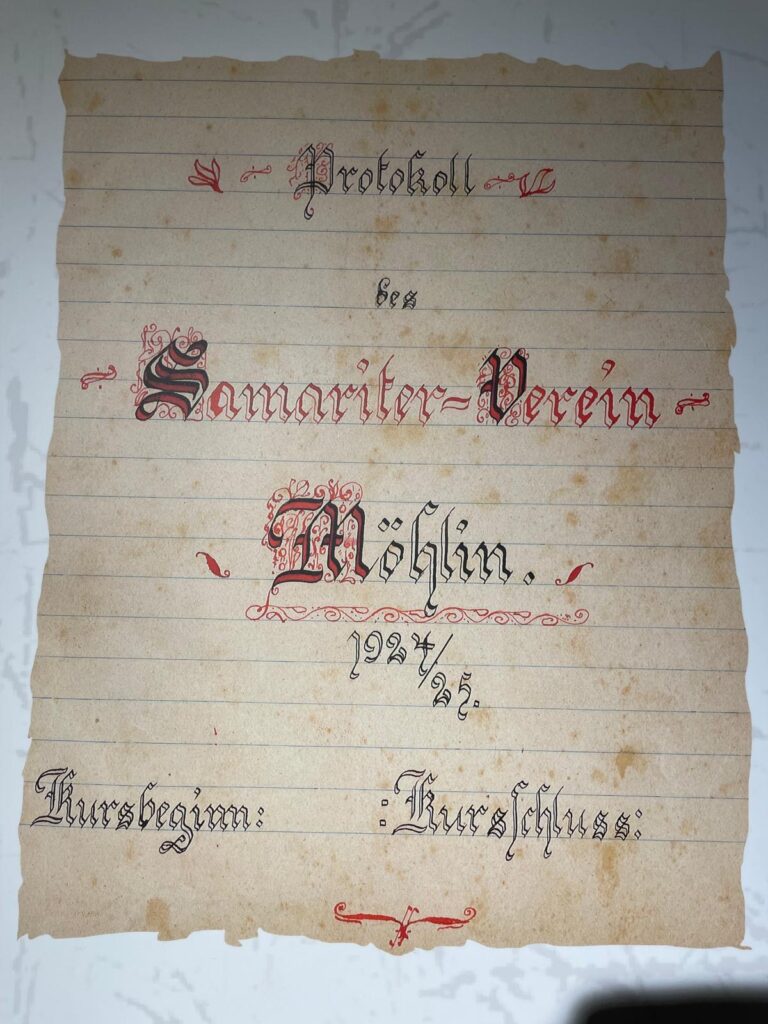 Protokoll
des
Samariter-Verein
Möhlin.
1924/25.
Kursbeginn: :Kursschluss: